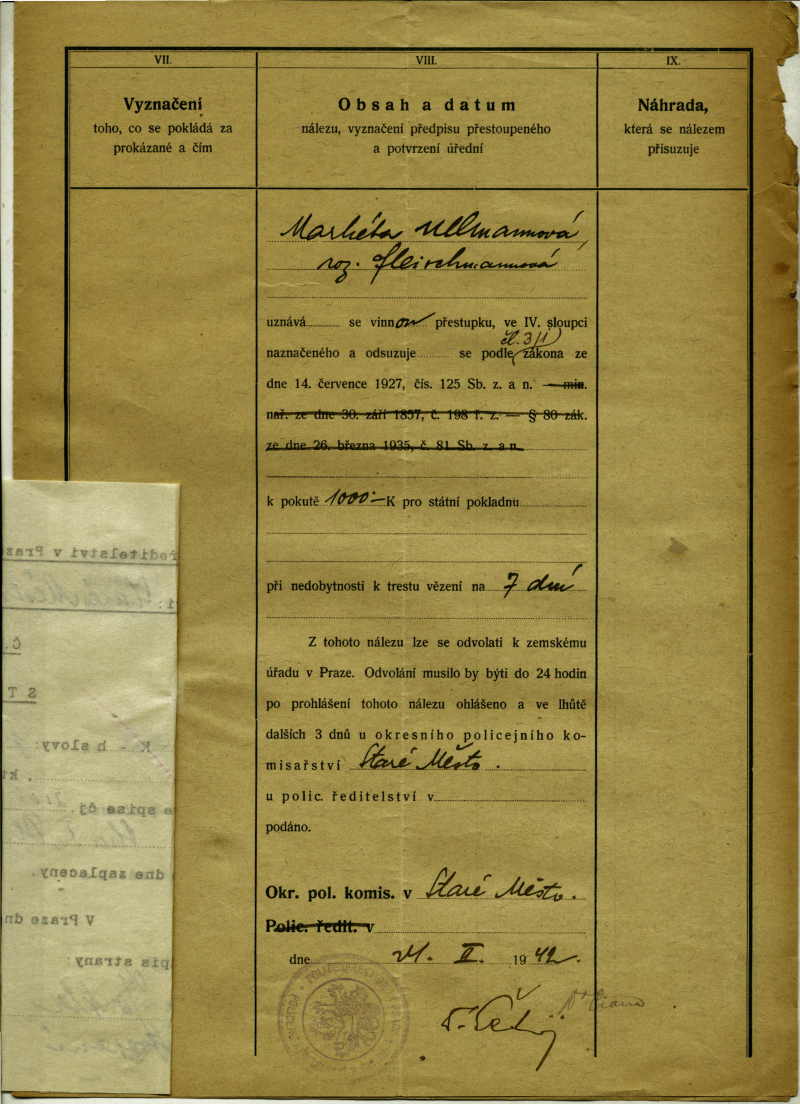 VII.
Vyznačení
toho, co se pokládá za
prokázané a čím
VIII.
Obsah a datum
nálezu, vyznačení předpisu přestoupeného
a potvrzení úřední
IX.
Náhrada,
která se nálezem
přisuzuje
Markéta Ullmannová,
roz. Fleischmannová
uznává se vinnou přestupku, ve IV. sloupci
čl. 3/1
naznačeného a odsuzuje se podle zákona ze
dne 14. července 1927, čís. 125 Sb. z. a n. — min.
nař. ze dne 30. září 1857, č. 198 ř. z. — § 80 zák.
ze dne 26. března 1935, č. 81 Sb. z. a n.
k pokutě 1000·– K pro státní pokladnu
při nedobytnosti k trestu vězení na 7 dní
Z tohoto nálezu lze se odvolati k zemskému
úřadu v Praze. Odvolání musilo by býti do 24 hodin
po prohlášení tohoto nálezu ohlášeno a ve lhůtě
dalších 3 dnů u okresního policejního ko-
misařství Staré Město.
u polic. ředitelství v
podáno.
Okr. pol. komis. v Staré Město.
Polic. ředit. v
dne 21. II. 1942.
ředitelství v Praze
Č.
S T
K - h slovy:
spise čj.
dne zaplaceny.
V Praze dn
pis strany: